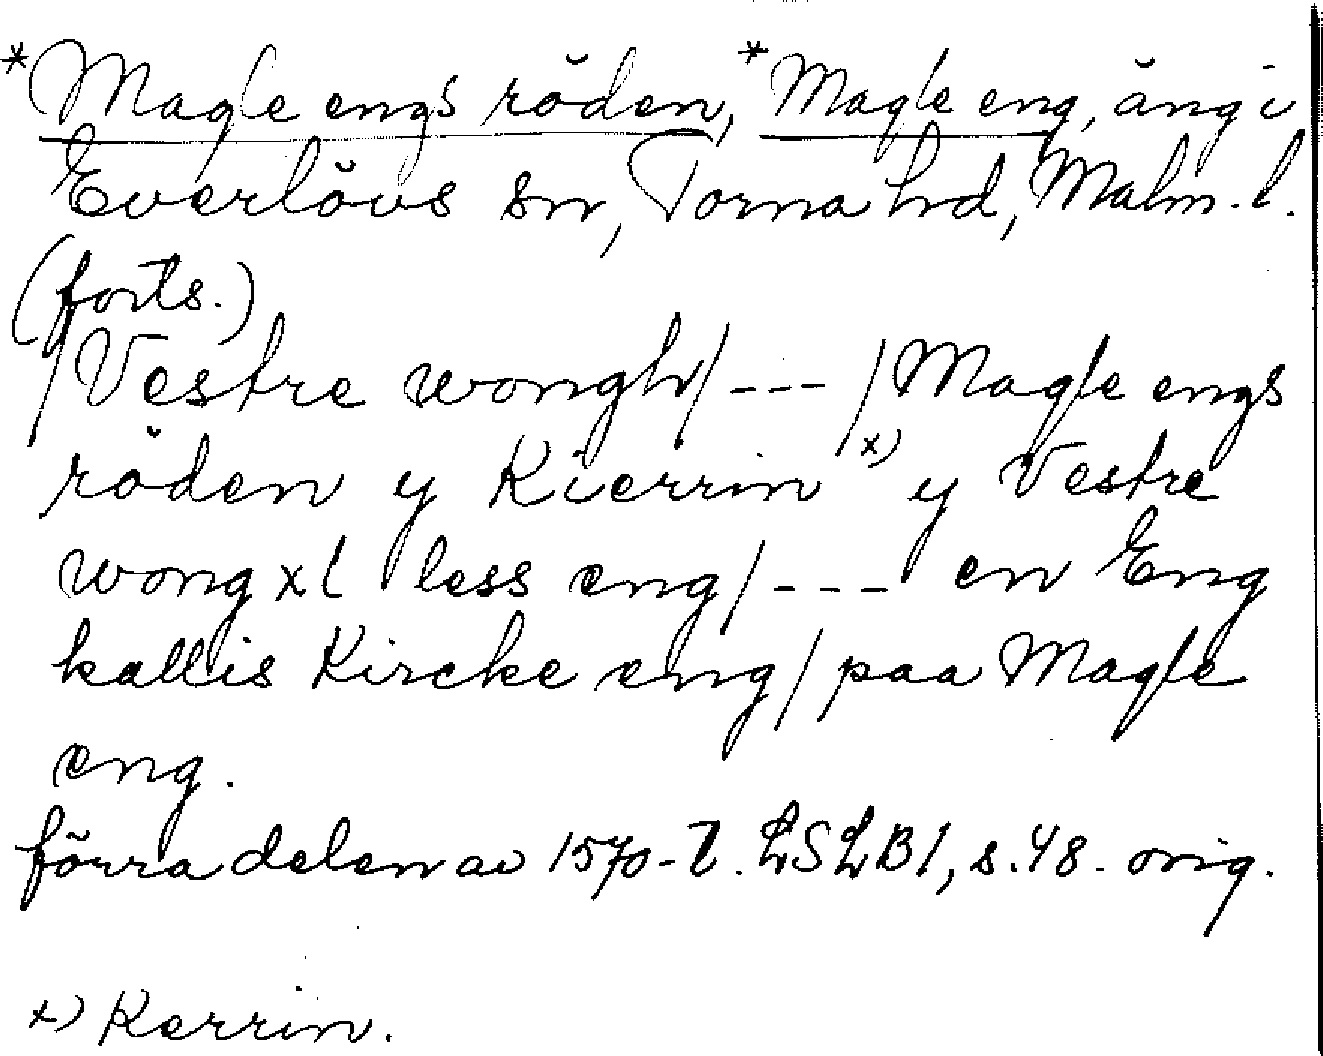 *Magle engs röden, *Magle eng, äng i
Everlövs sn, Torna hd, Malm. l.
(forts.)
/Vestre wongh/ --- /Magle engs
röden y Kierrin x) y Vestre
wong xl less eng/ --- en Eng
kallis Kircke eng/ paa Magle
eng.
förra delen av 1570-t. LSLB1, s. 48. orig.
x) Kerrin.